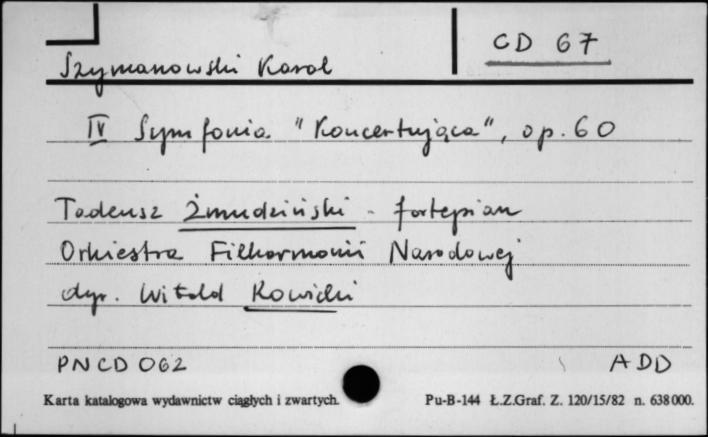 CD 67
Szymanowski Karol
IV Symfonia "Koncertująca", op. 60
Tadeusz Żmudziński - fortepian
Orkiestra Filharmonii Narodowej
dyr. Witold Rowicki
PNCD 062 ADD
Karta katalogowa wydawnictw ciągłych i zwartych. Pu-B-144 Ł.Z.Graf. Z. 120/15/82 n. 638000.